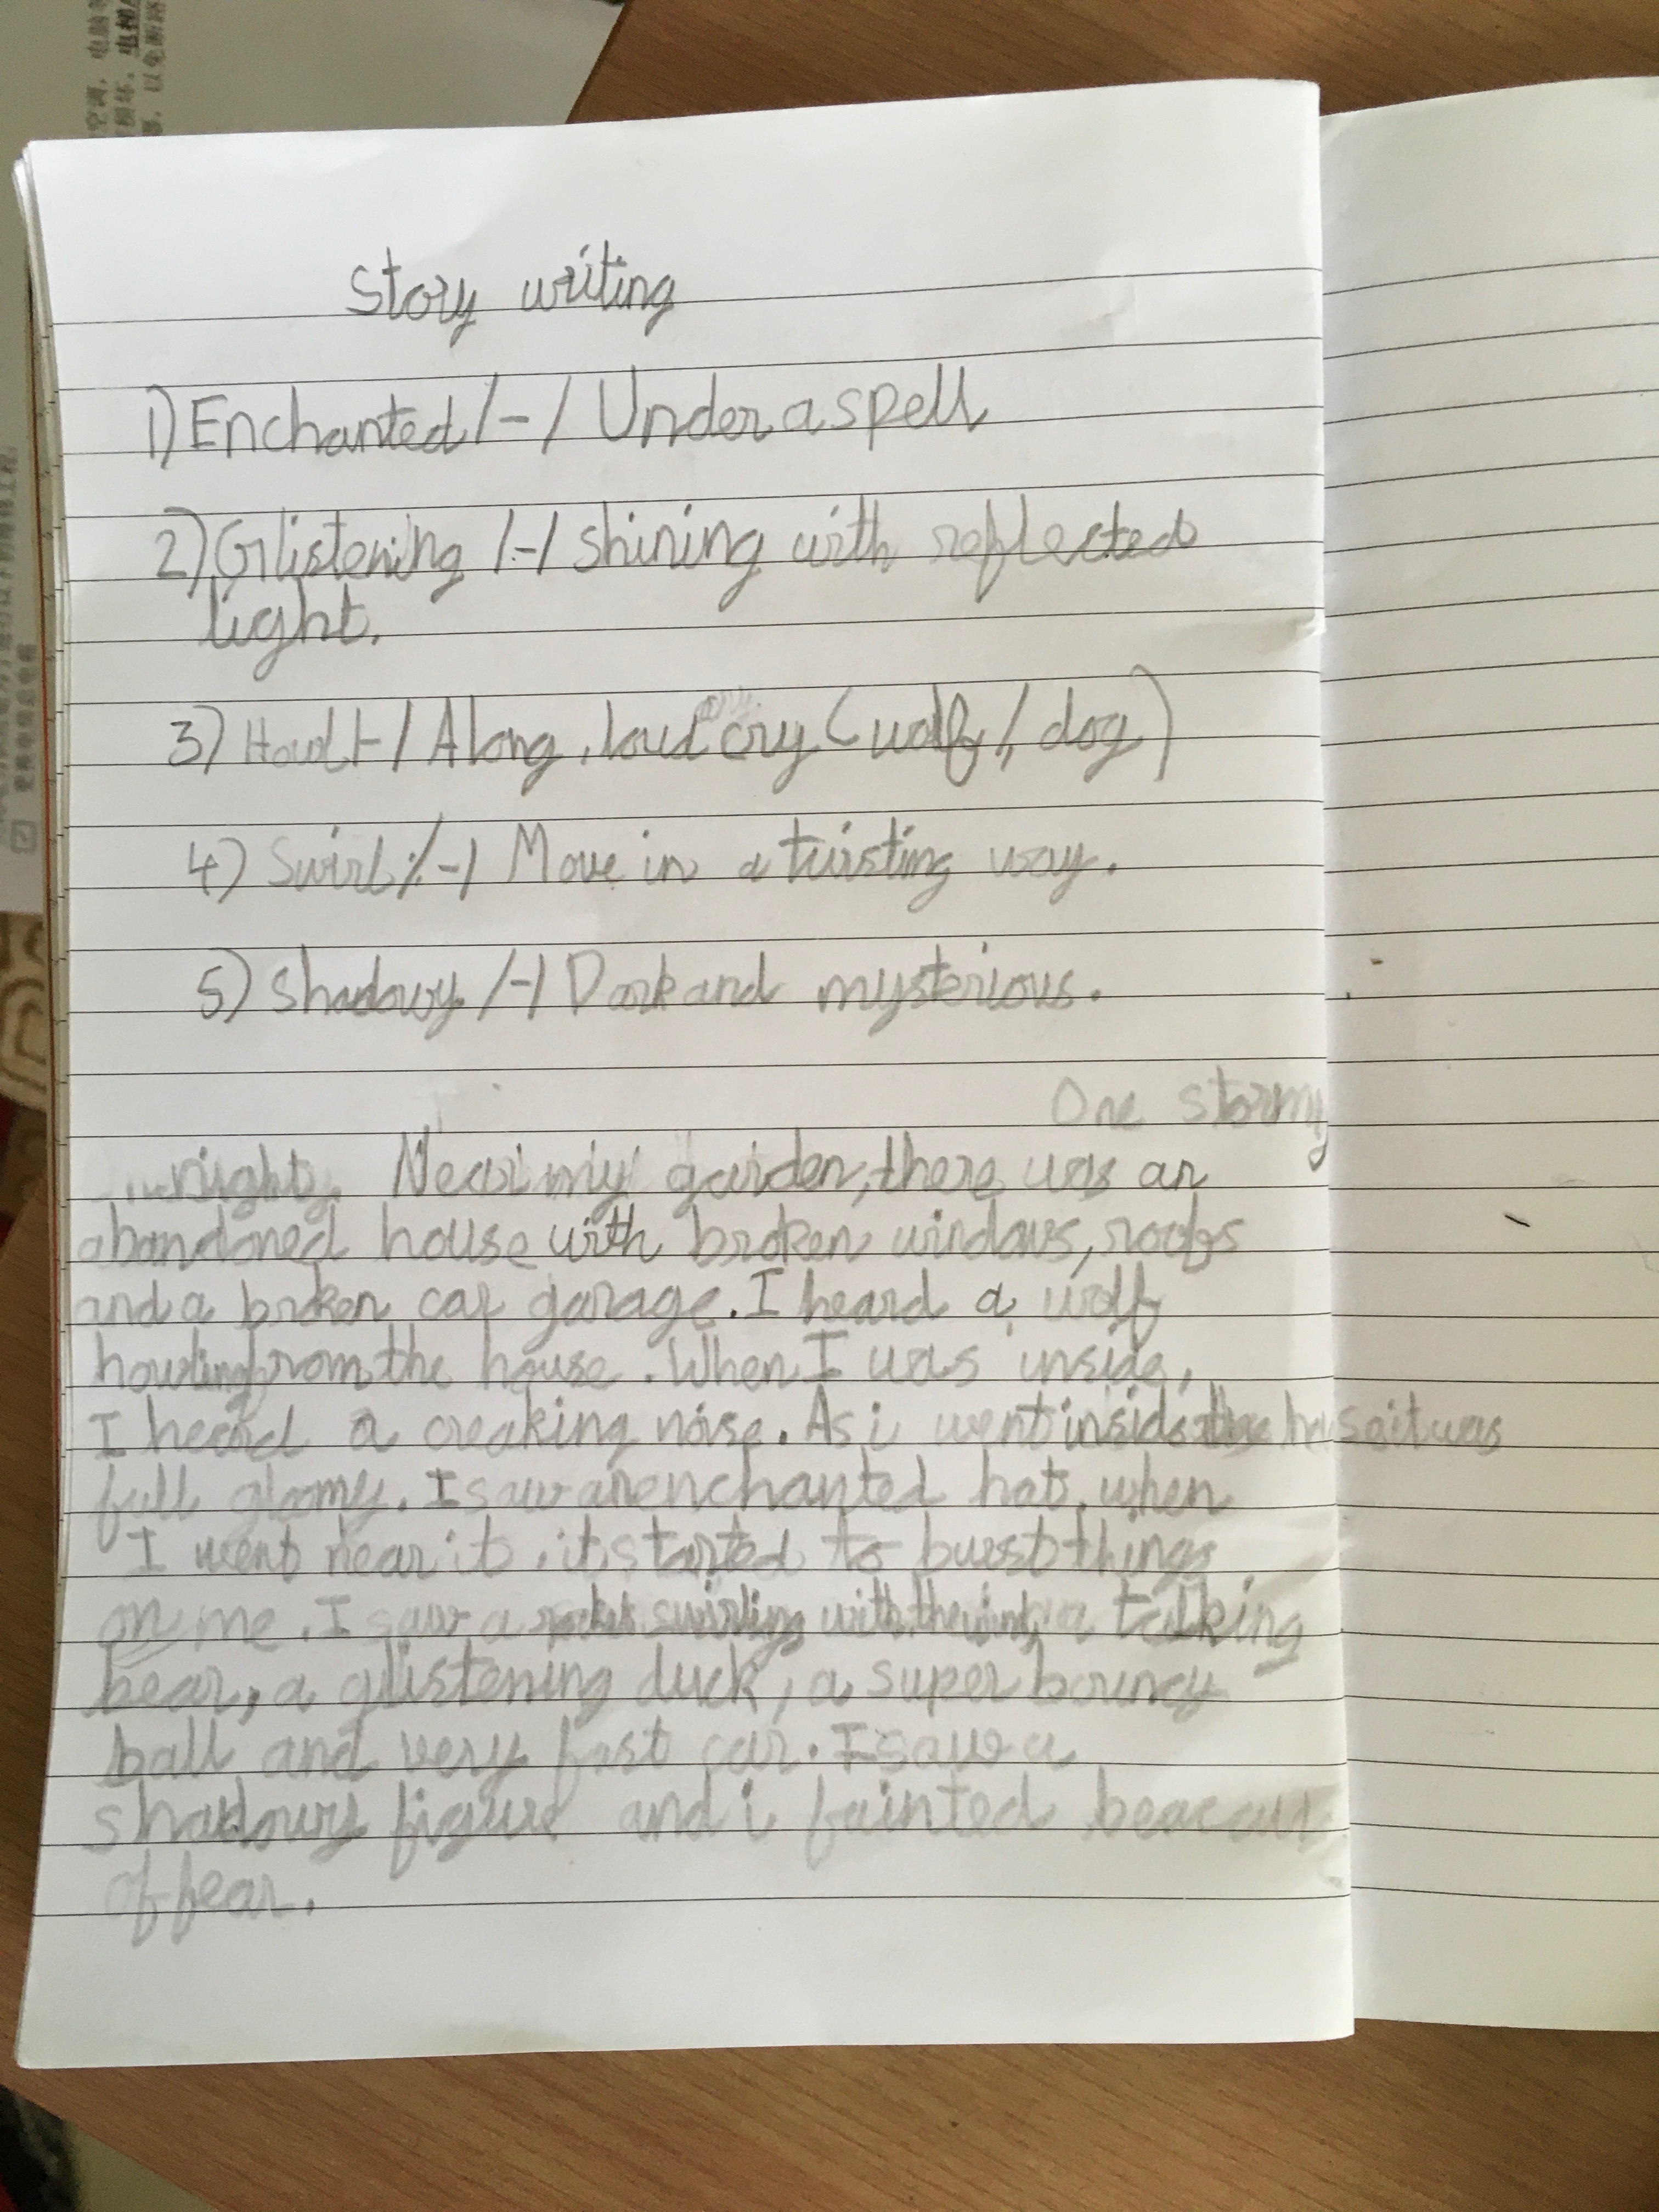 story writing
1) Enchanted /-/ Under a spell
2) Glistening /-/ shining with reflected
light.
3) Howl /-/ A long, loud cry (wolf / dog)
4) Swirl /-/ Move in a twisting way.
5) Shadowy /-/ Dark and mysterious.
One stormy
night, Near my garden, there was an
abandoned house with broken windows, roofs
and a broken car garage. I heard a wolf
howling from the house. When I was inside,
I heard a creaking noise. As i went inside the house it was
full gloomy. I saw an enchanted hat, when
I went near it, it started to burst things
on me. I saw a rocket swirling with the wind, a talking
bear, a glistening duck, a super bouncy
ball and very fast car. I saw a
shadowy figure and i fainted
of fear.